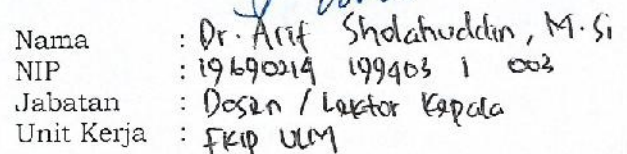 Nama : Dr. Arif Sholahuddin, M.Si
NIP : 19690214 199403 1 003
Jabatan : Dosen / Lektor Kepala
Unit Kerja : FKIP ULM